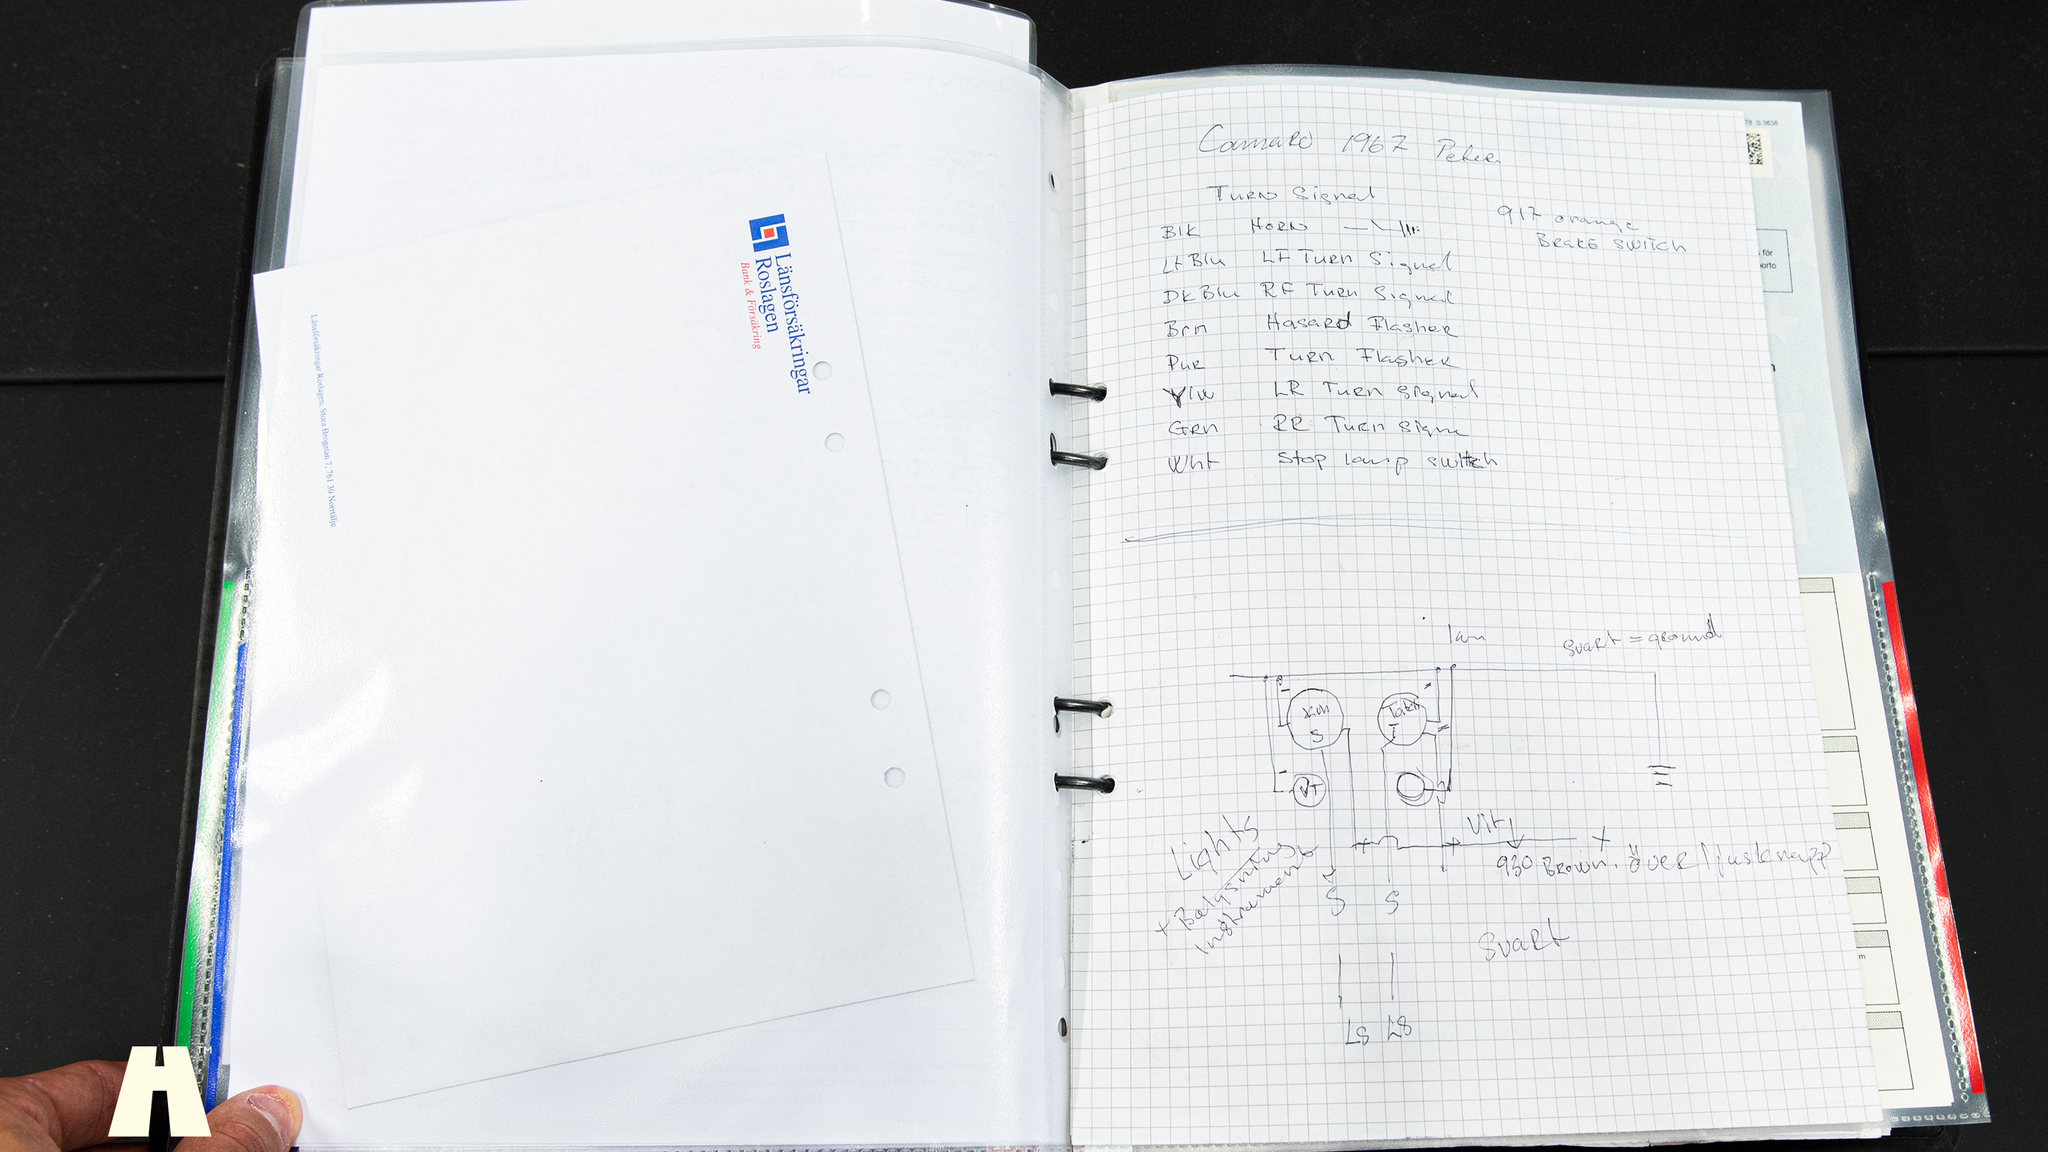 Länsförsäkringar
Roslagen
Bank & Försäkring
Länsförsäkringar Roslagen, Stora Brogatan 7, 761 30 Norrtälje
Camaro 1967 Peter
Turn Signal
917 orange
Brake switch
Blk Horn
Lt Blu LF Turn Signal
Dk Blu RF Turn Signal
Brn Hasard Flasher
Pur Turn Flasher
Ylw LR Turn Signal
Grn RR Turn Signa
Wht Stop lamp switch
Svart = ground
S
T
VT
Vit
Lights
+ Belysning
Instrument
930 Brown. över ljusknapp
S S
Svart
LS LS
för
porto